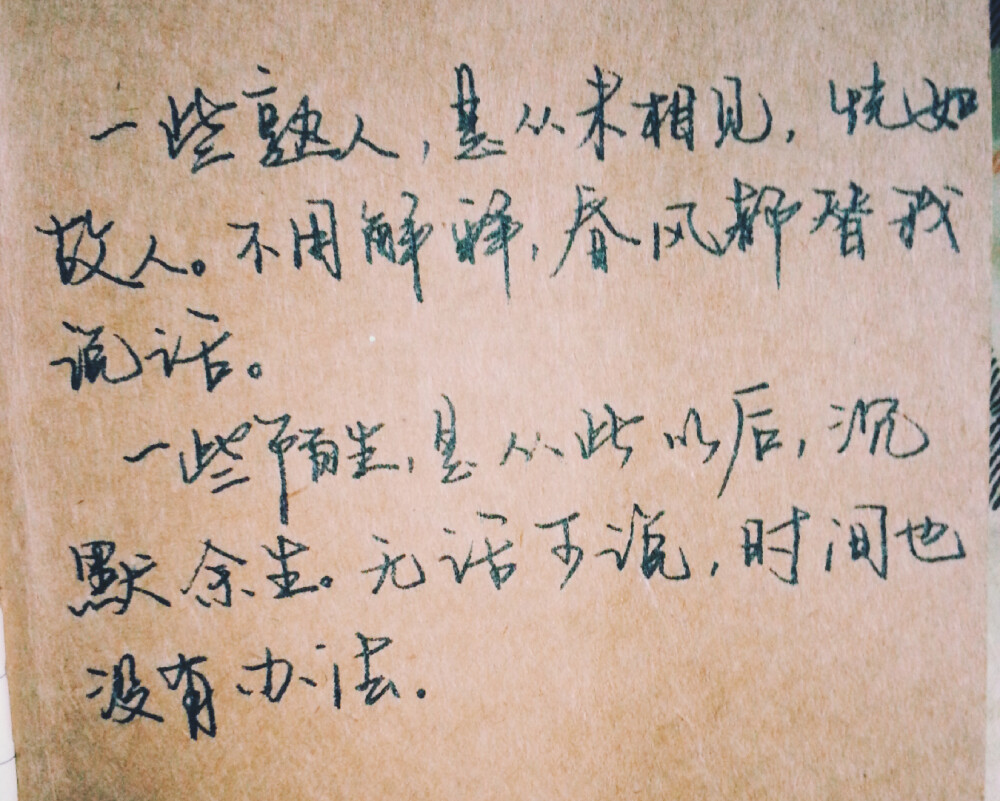 一些熟人，是从未相见，恍如
故人。不用解释，春风都替我
说话。
一些陌生，是从此以后，沉
默余生。无话可说，时间也
没有办法.